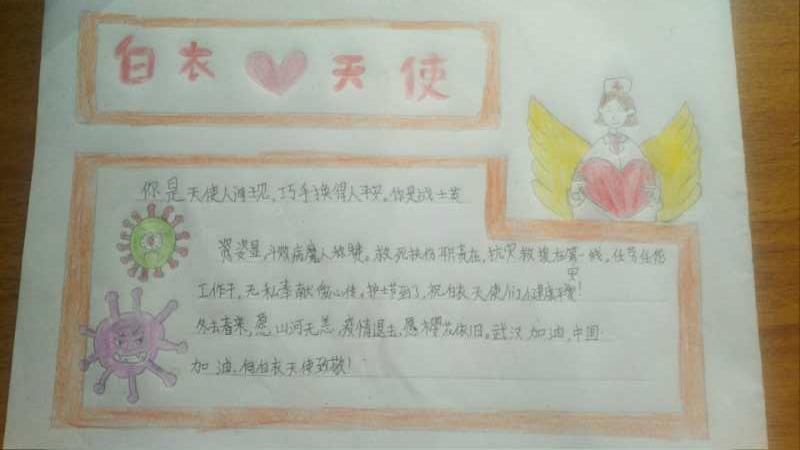 白衣天使
你是天使人间现,巧手换得人平安。你是战士英
姿显,斗败病魔人称赞。救死扶伤职责在,抗灾救援在第一线。任劳任怨
工作干,无私奉献爱心传。护士节到了,祝白衣天使们健康平安!
冬去春来,愿山河无恙,疫情退去,愿樱花依旧。武汉加油,中国
加油,向白衣天使致敬!